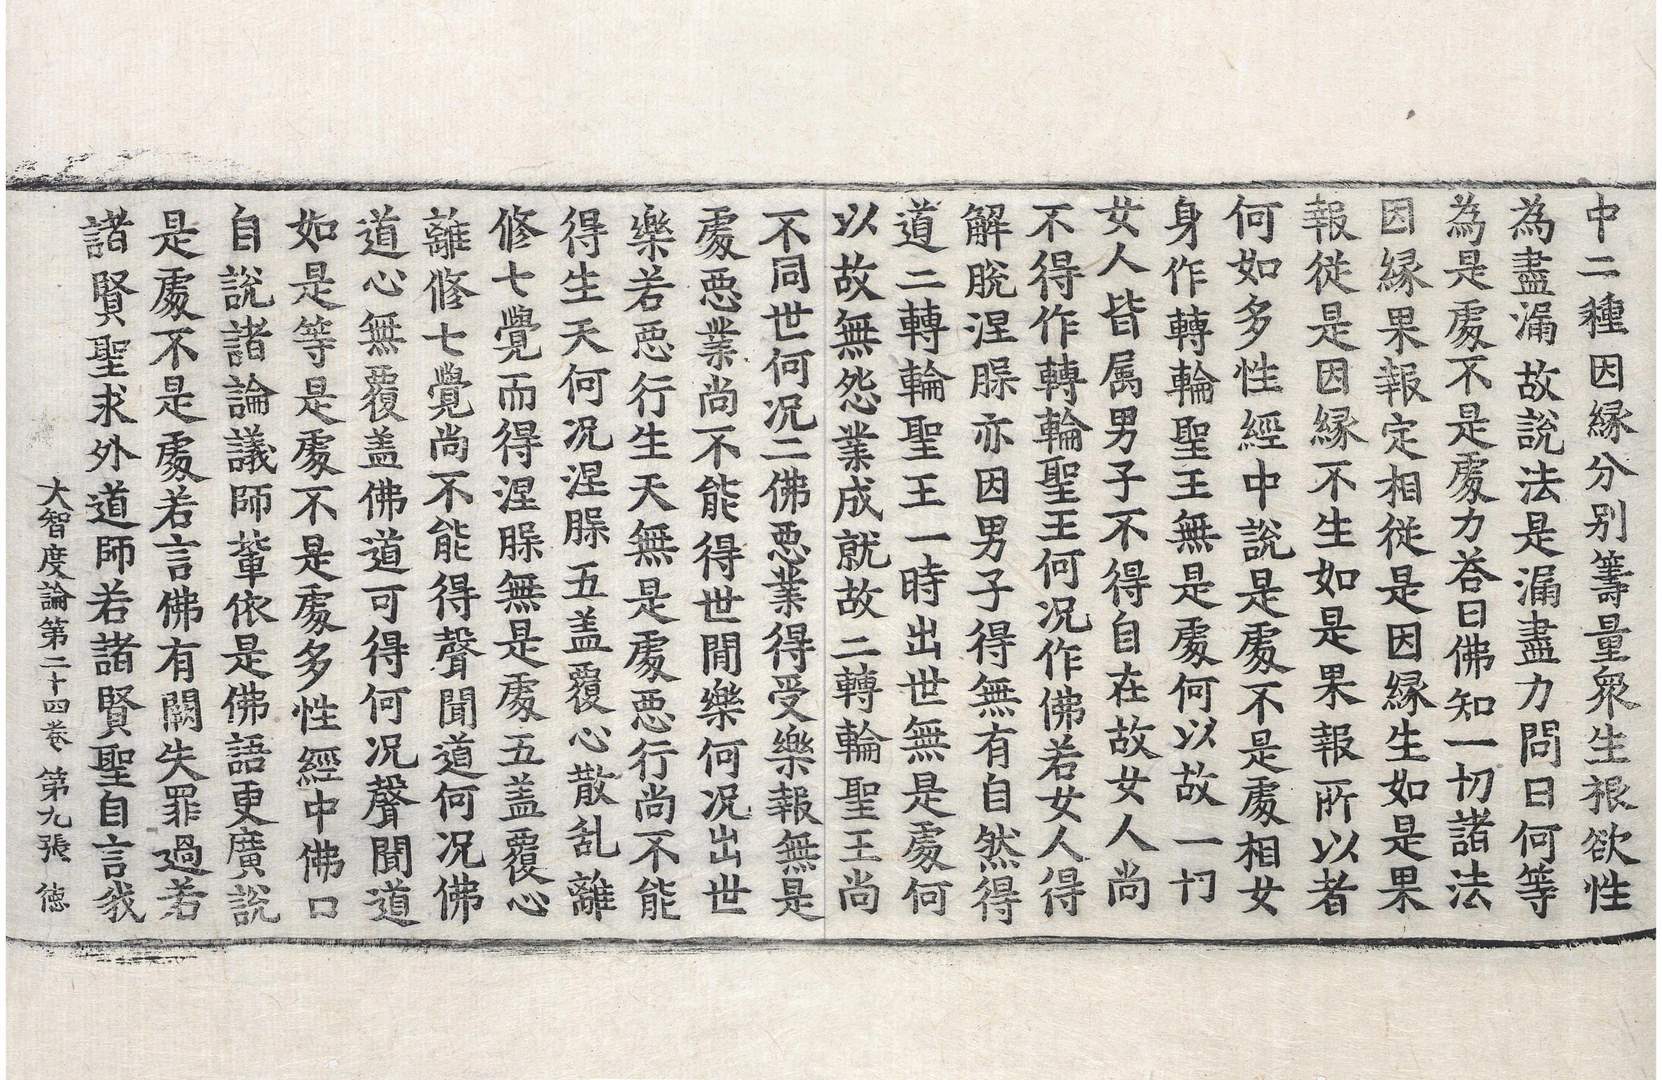 中二種因縁分别籌量衆生根欲性
為盡漏故說法是漏盡力問曰何等
為是處不是處力荅曰佛知一切諸法
因縁果報定相從是因縁生如是果
報從是因縁不生如是果報所以者
何如多性經中說是處不是處相女
身作轉輪聖王無是處何以故一切
女人皆属男子不得自在故女人尚
不得作轉輪聖王何况作佛若女人得
解脫涅腂亦因男子得無有自然得
道二轉輪聖王一時出世無是處何
以故無怨業成就故二轉輪聖王尚
不同世何况二佛惡業得受樂報無是
處惡業尚不能得世閒樂何况出世
樂若惡行生天無是處惡行尚不能
得生天何况涅腂五盖覆心散乱離
修七覺而得涅腂無是處五盖覆心
離修七覺尚不能得聲聞道何况佛
道心無覆盖佛道可得何况聲聞道
如是等是處不是處多性經中佛口
自說諸論議師軰依是佛語更廣說
是處不是處若言佛有闕失罪過若
諸賢聖求外道師若諸賢聖自言我
大智度論第二十四卷 第九張 徳